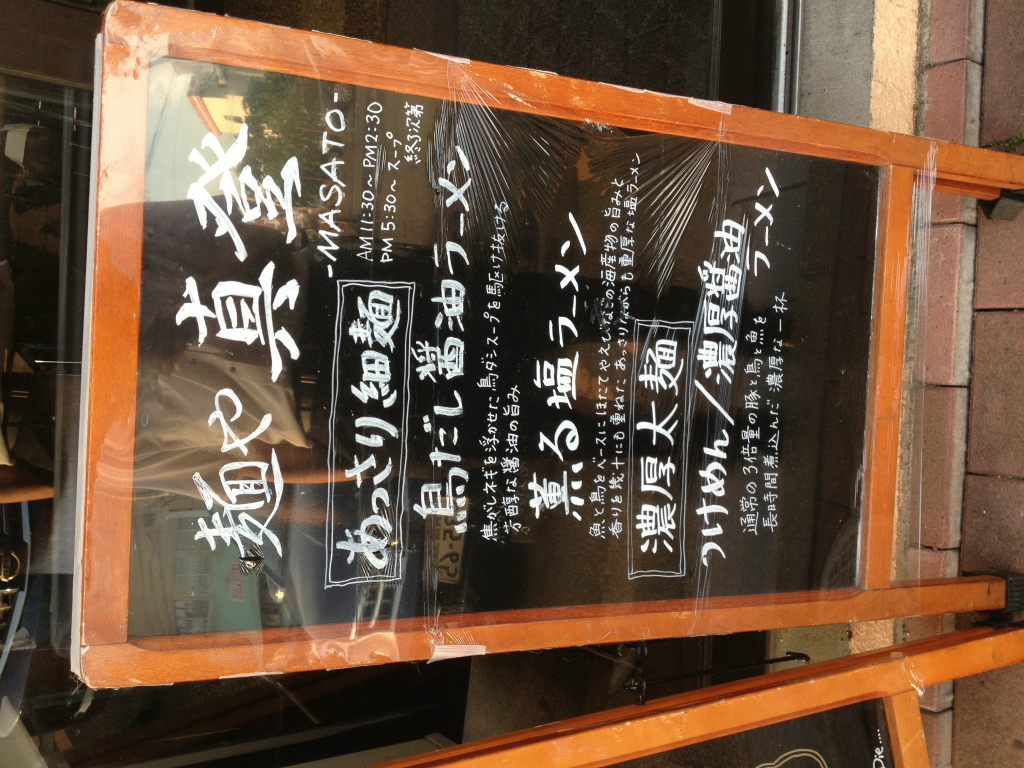 麺や真登
-MASATO-
AM11:30～PM2:30
PM5:30～スープ
終了次第
あっさり細麺
鳥だし醤油ラーメン
焦がしネギを浮かせた鳥ダシスープを駆け抜ける
芳醇な醤油の旨み
薫る塩ラーメン
魚と鳥をベースにほたてやえびなどの海産物の旨みと
香りを幾十にも重ねたあっさりながらも重厚な塩ラーメン
濃厚太麺
つけめん/濃厚醤油
ラーメン
通常の3倍量の豚と鳥と魚を
長時間煮込んだ濃厚な一杯
Die....